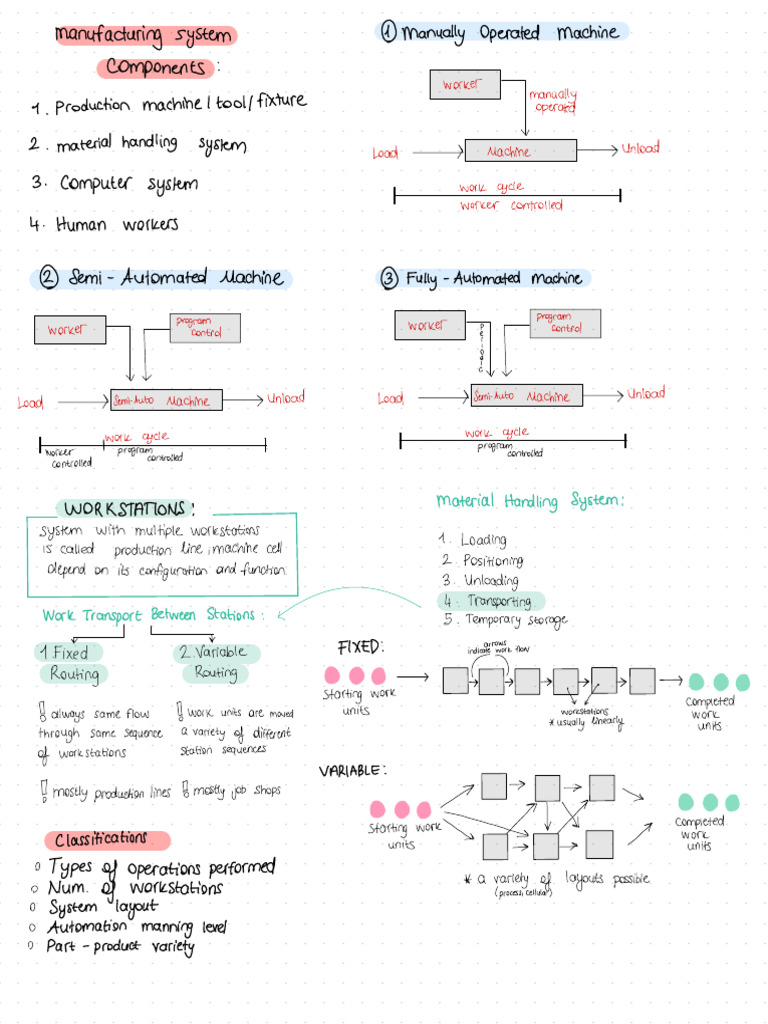 manufacturing system
Components:
1. Production machine/tool/fixture
2. material handling system
3. Computer system
4. Human workers
① Manually Operated Machine
Worker
manually
operated
Load
Machine
Unload
work cycle
worker controlled
② Semi-Automated Machine
Worker
program
control
Load
Semi-Auto Machine
Unload
work cycle
worker
controlled
program
controlled
③ Fully-Automated machine
Worker
Periodic
program
control
Load
Semi-Auto Machine
Unload
work cycle
program
controlled
WORKSTATIONS:
system with multiple workstations
is called production line, machine cell
depend on its configuration and function
Work Transport Between Stations:
1. Fixed
Routing
2. Variable
Routing
! always same flow
through same sequence
of workstations
! mostly production lines
! work units are moved
a variety of different
station sequences
! mostly job shops
Material Handling System:
1. Loading
2. Positioning
3. Unloading
4. Transporting
5. Temporary storage
FIXED:
arrows
indicate work flow
Starting work
units
workstations
* usually linearly
Completed
work
units
VARIABLE:
Starting work
units
Completed
work
units
* a variety of layouts possible
(process, cellular)
Classifications
o Types of operations performed
o Num. of workstations
o System layout
o Automation manning level
o Part-product variety